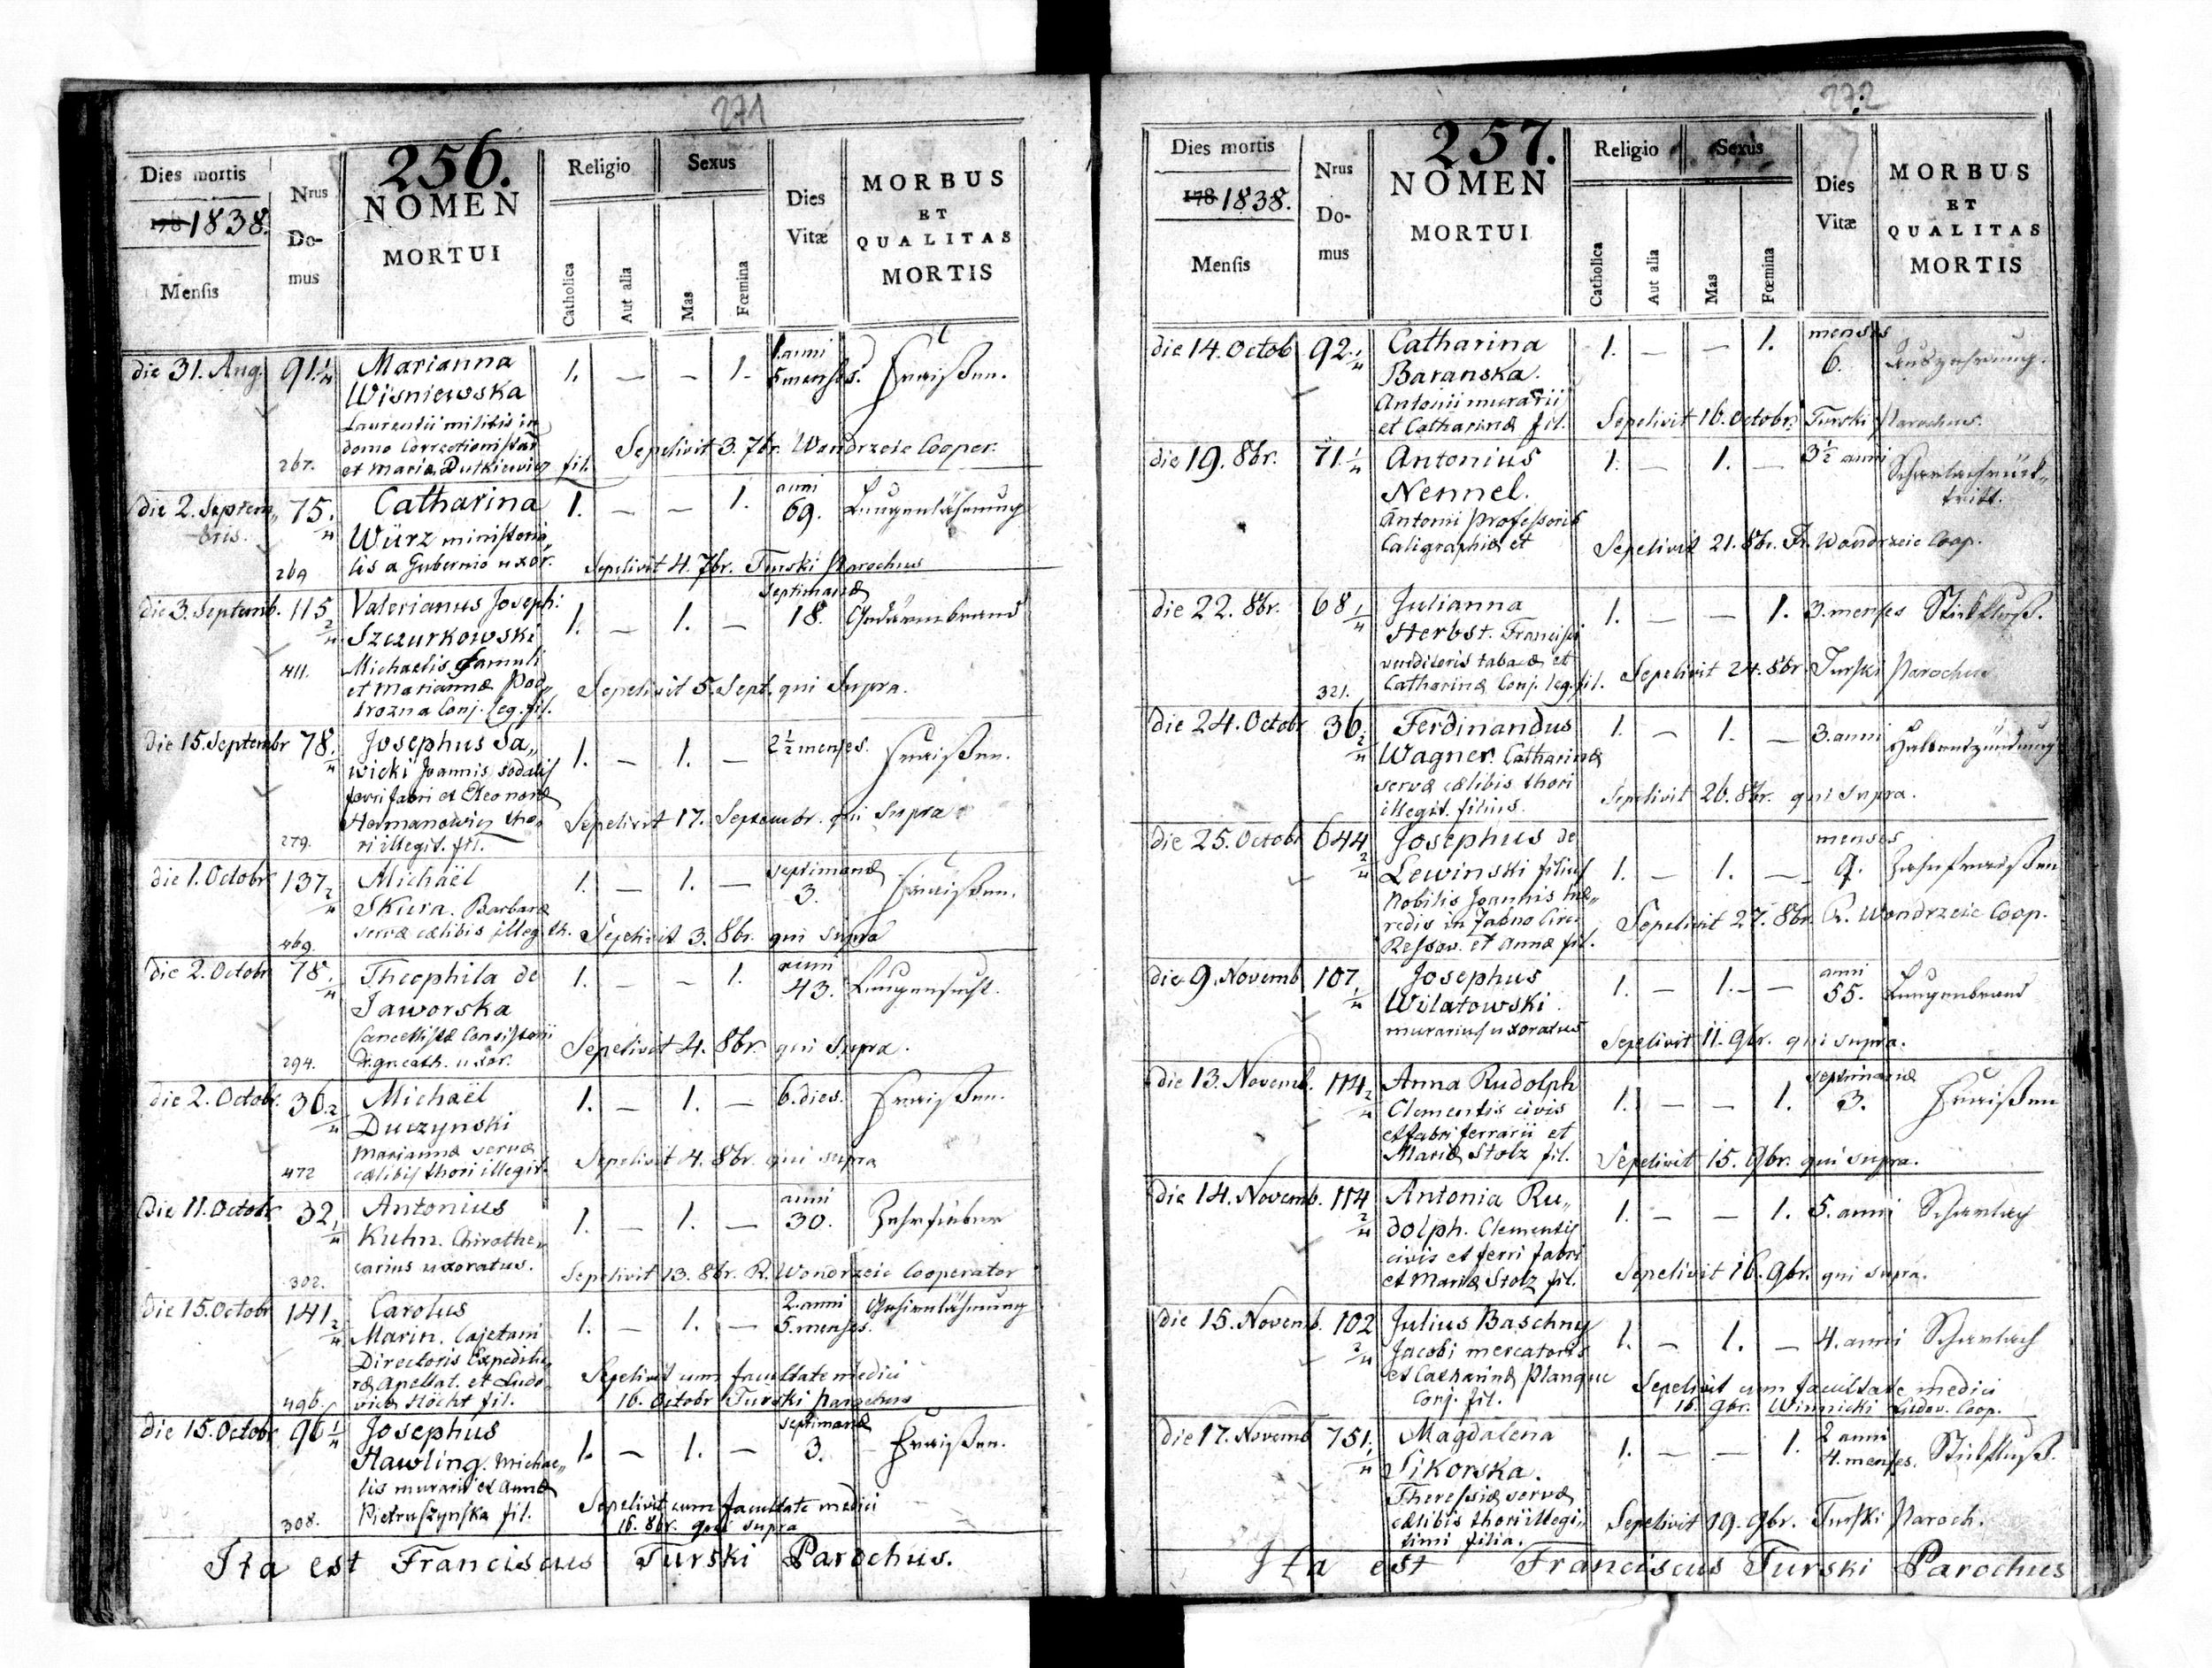 271
256.
Dies mortis
178 1838.
Mensis
Nrus
Do-
mus
NOMEN
MORTUI
Religio
Catholica
Aut alia
Sexus
Mas
Fœmina
Dies
Vitæ
MORBUS
ET
QUALITAS
MORTIS
die 31. Aug. 91. 1/4 Marianna 1. — — 1. 1. anni
Wisniewska 5 menses. Fraißen.
Laurentii militis in
domo Correctionis
267. et Maria Dutkiewicz fil. Sepelivit 3. 7br. Wondrzeic Cooper.
die 2. Septem„ 75. 1/4 Catharina 1. — — 1. anni 69. Lungenlähmung
bris. Würz ministeria„
269 lis a Gubernio uxor. Sepelivit 4. 7br. Turski Parochus
die 3. Septemb. 115 2/4 Valerianus Joseph: 1. — 1. — septimanæ 18. Gedärmbrand
Szczurkowski
411. Michaelis famuli
et Mariannæ Pod„ Sepelivit 5. Sept. qui supra.
brozna Conj. leg. fil.
die 15. Septembr 78. 1/4 Josephus Sa„ 1. — 1. — 2 1/2 menses. Fraißen.
wicki Joannis sodalis
ferri fabri et Eleonoræ
Hermanowicz tho„ Sepelivit 17. Septembr. qui supra
279. ri illegit. fil.
die 1. Octobr 137 2/4 Michaël 1. — 1. — septimanæ 3. Fraißen.
Skura. Barbaræ
469. servæ cælibis illeg. th. Sepelivit 3. 8br. qui supra
die 2. Octobr 78. 1/4 Theophila de 1. — — 1. anni 43. Lungensucht.
Jaworska
Cancellistæ Consistorii
294. r. gr. cath. uxor. Sepelivit 4. 8br. qui supra.
die 2. Octobr. 36. 2/4 Michaël 1. — 1. — 6. dies. Fraißen.
Duczynski
Mariannæ servæ
472 cælibis thori illegit. Sepelivit 4. 8br. qui supra
die 11. Octobr 32. 1/4 Antonius 1. — 1. — anni 30. Zehrfieber
Kuhn. Chirothe„
302. carius uxoratus. Sepelivit 13. 8br. R. Wondrzeic Cooperator
die 15. Octobr 141 2/4 Carolus 1. — 1. — 2. anni 5. menses. Gehirnlähmung
Marin. Cajetani
Directoris Expeditu„
ræ Apellat. et Ludo„ Sepelivit cum facultate medici
496. vicæ Höcht fil. 16. Octobr Turski Parochus
die 15. Octobr 96 1/4 Josephus 1. — 1. — septimanæ 3. Fraißen.
Hawling. Michae„
lis murarii et Annæ Sepelivit cum facultate medici
308. Pietruszynska fil. 16. 8br. qui supra
Ita est Franciscus Turski Parochus.
272
257.
Dies mortis
178 1838.
Mensis
Nrus
Do-
mus
NOMEN
MORTUI
Religio
Catholica
Aut alia
Sexus
Mas
Fœmina
Dies
Vitæ
MORBUS
ET
QUALITAS
MORTIS
die 14. Octob 92. 1/4 Catharina 1. — — 1. menses 6. Auszehrung.
Baranska.
Antonii murarii
et Catharinæ fil. Sepelivit 16. Octobr. Turski Parochus.
die 19. 8br. 71. 1/4 Antonius 1. — 1. — 3 1/2 anni Scharlachrück„
Nennel. tritt.
Antonii Professoris
Caligraphiæ et Sepelivit 21. 8br. R. Wondrzeic Coop.
die 22. 8br. 68 1/4 Julianna 1. — — 1. 3. menses Stickfluß.
Herbst. Francisci
venditoris tabacæ et
321. Catharinæ Conj. leg. fil. Sepelivit 24. 8br Turski Parochus
die 24. Octobr 36 2/4 Ferdinandus 1. — 1. — 3. anni Halsentzündung
Wagner. Catharinæ
servæ cælibis thori
illegit. filius. Sepelivit 26. 8br. qui supra.
die 25. Octobr 644 2/4 Josephus de 1. — 1. — menses 9. Zahnfraißen
Lewinski filius
Nobilis Joannis hæ„
redis in Circ. Sepelivit 27. 8br. R. Wondrzeic Coop.
Ressov. et Annæ fil.
die 9. Novemb 107 1/4 Josephus 1. — 1. — anni 55. Lungenbrand
Wilatowski
murarius uxoratus Sepelivit 11. 9br. qui supra.
die 13. Novemb. 114 2/4 Anna Rudolph 1. — — 1. septimanæ 3. Fraißen
Clementis civis
et fabri ferrarii et
Mariæ Stolz fil. Sepelivit 15. 9br. qui supra.
die 14. Novemb. 114 2/4 Antonia Ru„ 1. — — 1. 5. anni Scharlach
dolph. Clementis
civis et ferri fabri
et Mariæ Stolz fil. Sepelivit 16. 9br. qui supra.
die 15. Novemb. 102 3/4 Julius Baschny 1. — 1. — 4. anni Scharlach
Jacobi mercatoris
et Catharinæ Planque Sepelivit cum facultate medici
Conj. fil. 16. 9br. Winnicki Ludov. Coop.
die 17. Novemb 751. 1/4 Magdalena 1. — — 1. 2 anni 4. menses. Stickfluß.
Sikorska.
Theressiæ servæ
cælibis thori illegi„ Sepelivit 19. 9br. Turski Paroch.
timi filia.
Ita est Franciscus Turski Parochus